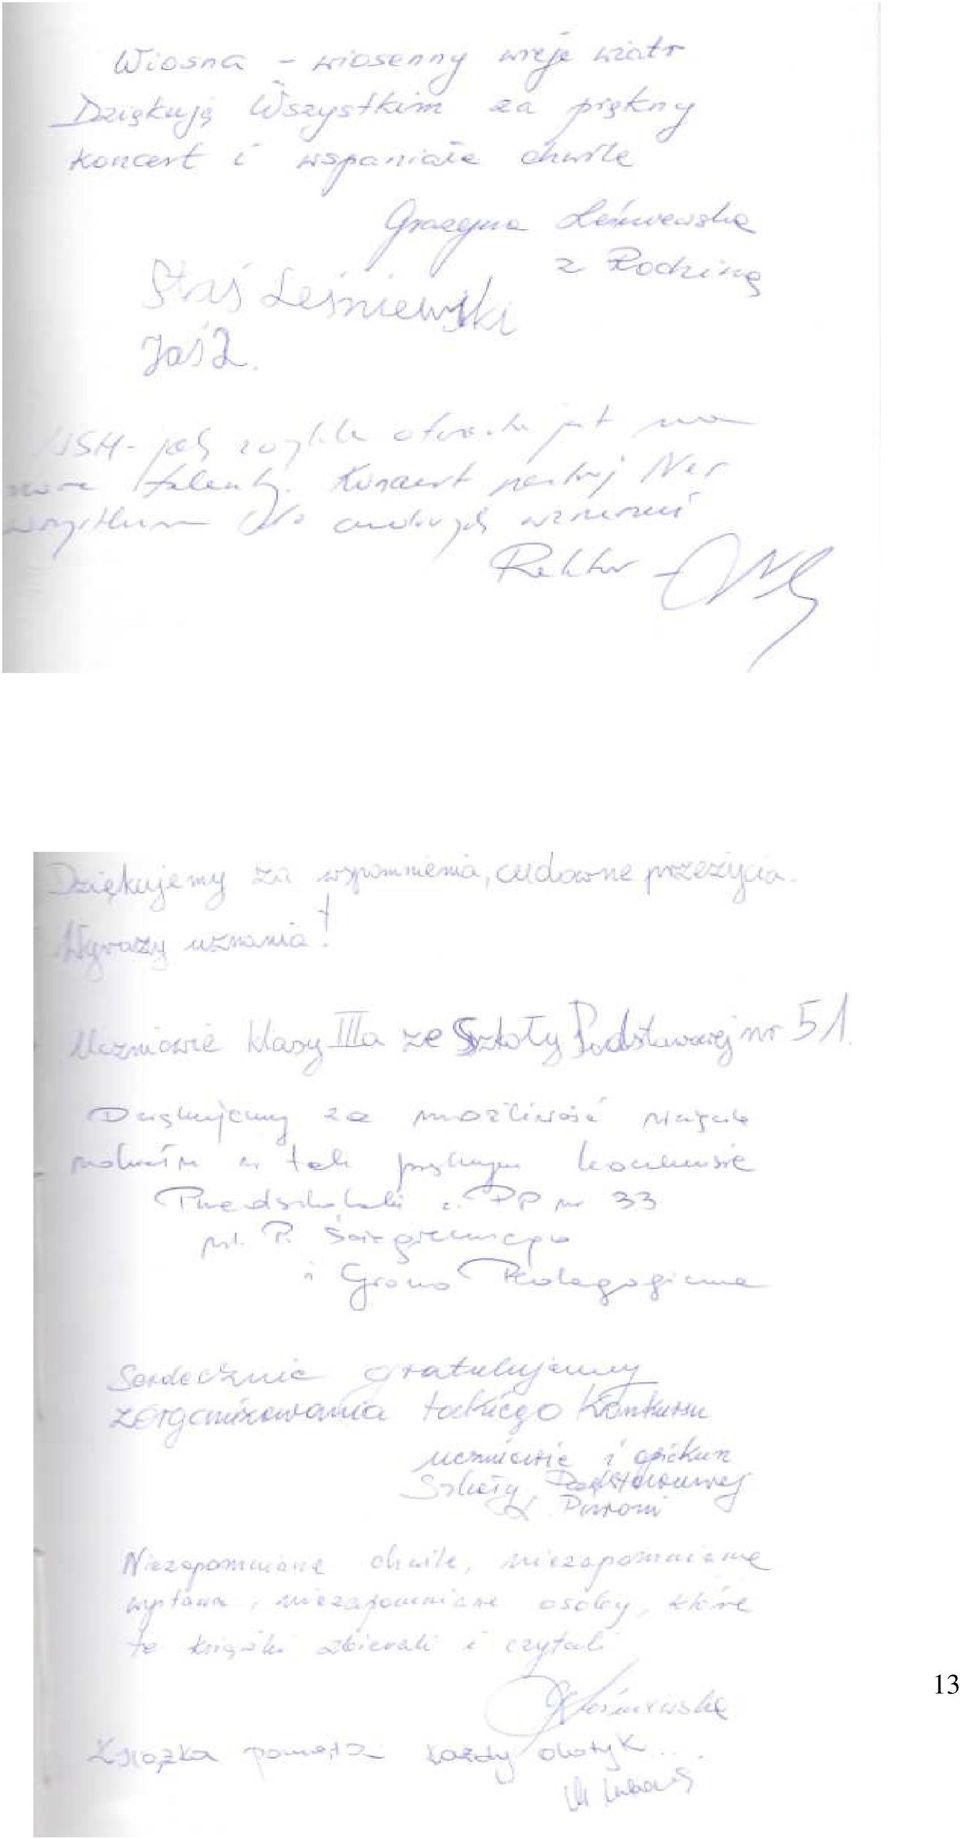 Wiosna - wiosenny wieje wiatr
Dziękuję Wszystkim za piękny
koncert i wspaniałe chwile
Grażyna Leśniewska
z Rodziną
Staś Leśniewski
Jaś L.
WSH - jak zwykle otwarta jest na
nowe talenty. Koncert
wszystkim
Rektor
Dziękujemy za wspomnienia, cudowne przeżycia.
Wyrazy uznania!
Uczniowie klasy IIIa ze Szkoły Podstawowej nr 51.
Dziękujemy za możliwość wzięcia
udziału w tak pięknym konkursie
Przedszkolaki z PP nr 33
i Grono Pedagogiczne
Serdecznie gratulujemy
zorganizowania takiego Konkursu
uczniowie i opiekun
Szkoły Podstawowej
Niezapomniane chwile, niezapomniana
wystawa, niezapomniane osoby, które
te książki zbierali i czytali
Leśniewska
Książka pamięta każdy dotyk....
13